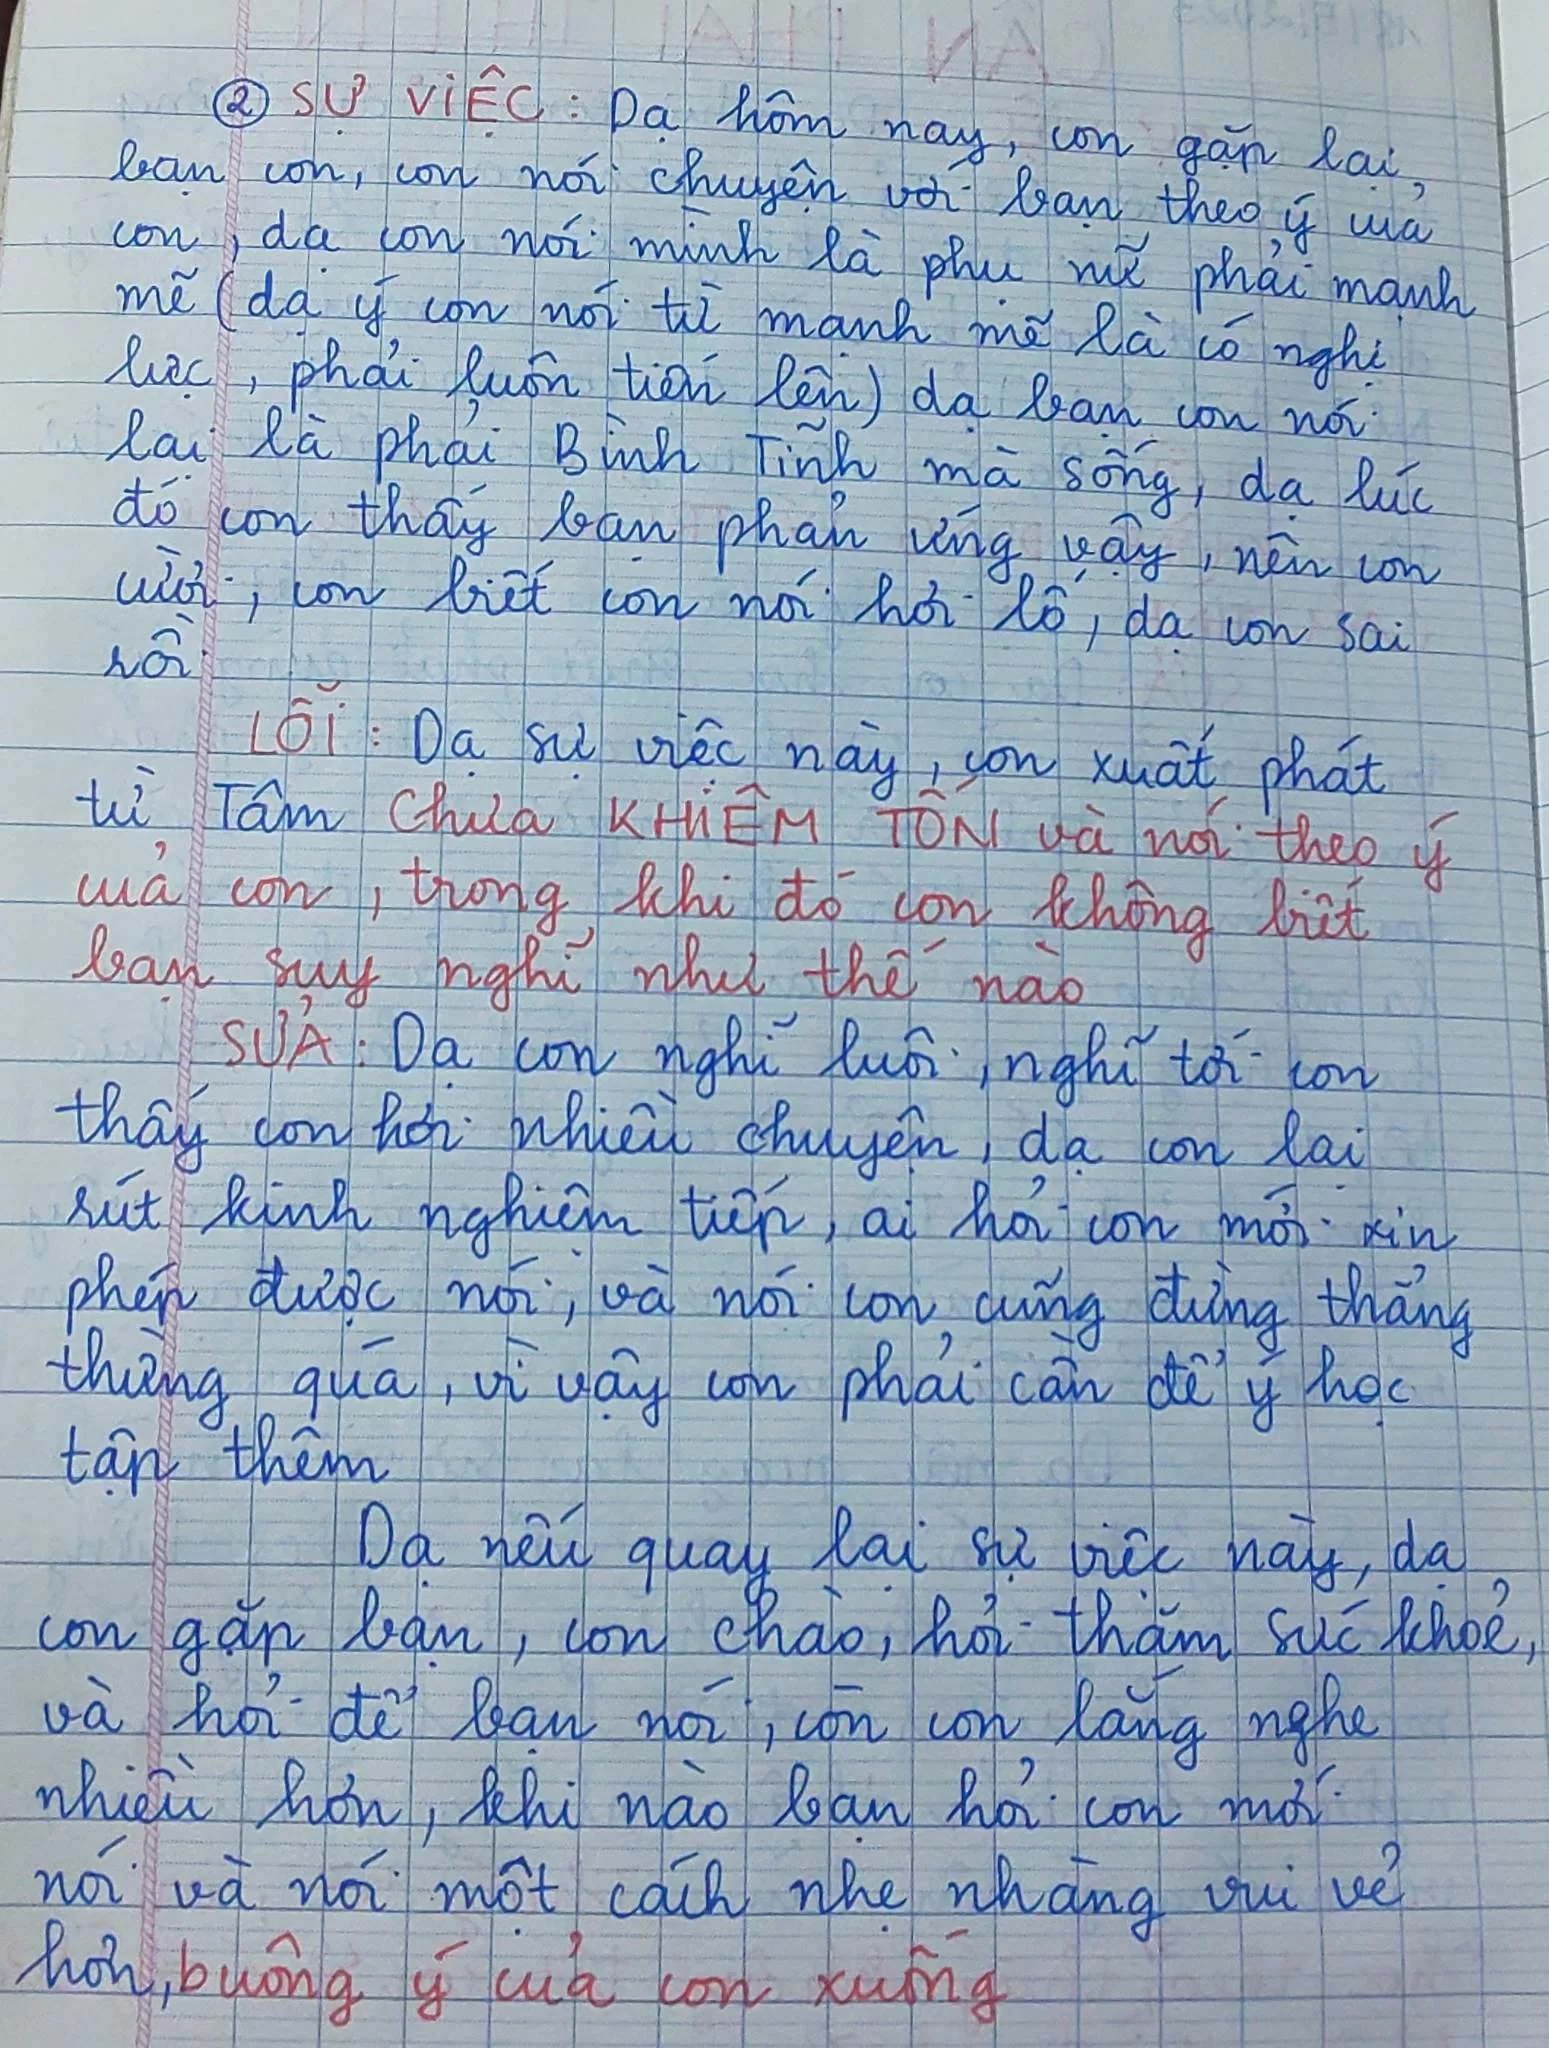 ② SỰ VIỆC: Dạ hôm nay, con gặp lại
bạn con, con nói chuyện với bạn theo ý của
con, dạ con nói mình là phụ nữ phải mạnh
mẽ (dạ ý con nói từ mạnh mẽ là có nghị
lực, phải luôn tiến lên) dạ bạn con nói
lại là phải Bình Tĩnh mà sống, dạ lúc
đó con thấy bạn phản ứng vậy, nên con
cười, con biết con nói hơi lố, dạ con sai
rồi
LỖI: Dạ sự việc này, con xuất phát
từ Tâm Chưa KHIÊM TỐN và nói theo ý
của con, trong khi đó con không biết
bạn suy nghĩ như thế nào
SỬA: Dạ con nghĩ luôi, nghĩ tới con
thấy con hơi nhiều chuyện, dạ con lại
rút kinh nghiệm tiếp, ai hỏi con mới xin
phép được nói, và nói con cũng đừng thẳng
thừng quá, vì vậy con phải cần để ý học
tập thêm
Dạ nếu quay lại sự việc này, dạ
con gặp bạn, con chào, hỏi thăm sức khoẻ,
và hỏi để bạn nói, còn con lắng nghe
nhiều hơn, khi nào bạn hỏi con mới
nói và nói một cách nhẹ nhàng vui vẻ
hơn, buông ý của con xuống